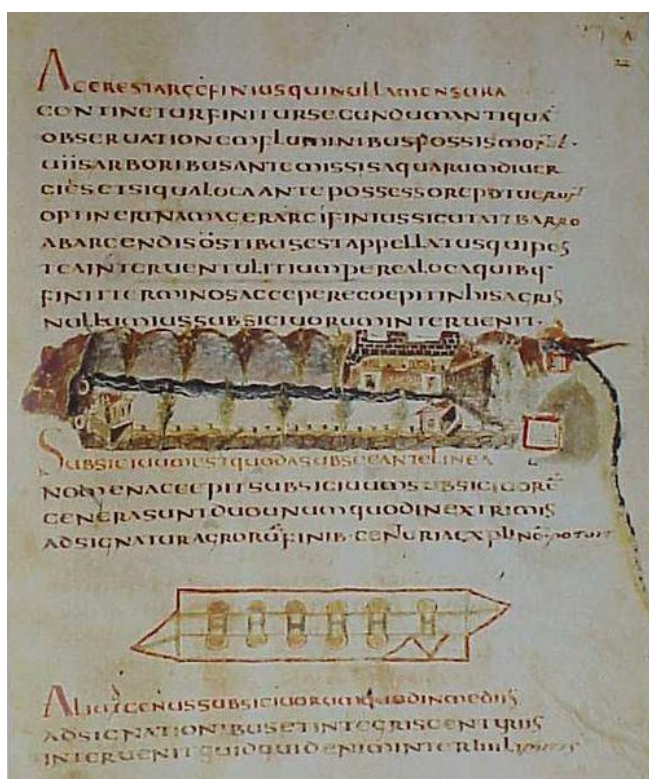 ACCRESTARCEFINIUSQUINULLAMENSURA
CONTINETURFINITURSECUNDUMANTIQUÃ
OBSERUATIONEMFLUMINIBUSFOSSISMONTIB·
UIISARBORIBUSANTEMISSISAQUARUMDIUER
GIISETSIQUALOCAANTEPOSSESSOREPOTUERUNT
OPTINERINAMAGERARCIFINIUSSICUTAITBARRO
ABARCENDISOSTIBUSESTAPPELLATUSQUIPOS
TEAINTERUENTULITIUMPEREALOCAQUIBQ·
FINITTERMINOSACCEPERECOEPITINHISAGRIS
NULLUMIUSSUBSICIUORUMINTERUENIT·
SUBSICIUUMESTQUODASUBSECANTELINEA
NOMENACCEPITSUBSICIUUMSUBSICIUORẼ
GENERASUNTDUOUNUMQUODINEXTRIMIS
ADSIGNATURAGRORŨFINIB·CENTURIAEXPLINÕ·POTUIT
ALIUTGENUSSUBSICIUORUMQUODINMEDIIS
ADSIGNATIONIBUSETINTEGRISCENTURIIS
INTERUENITQUIDQUIDENIMINTER